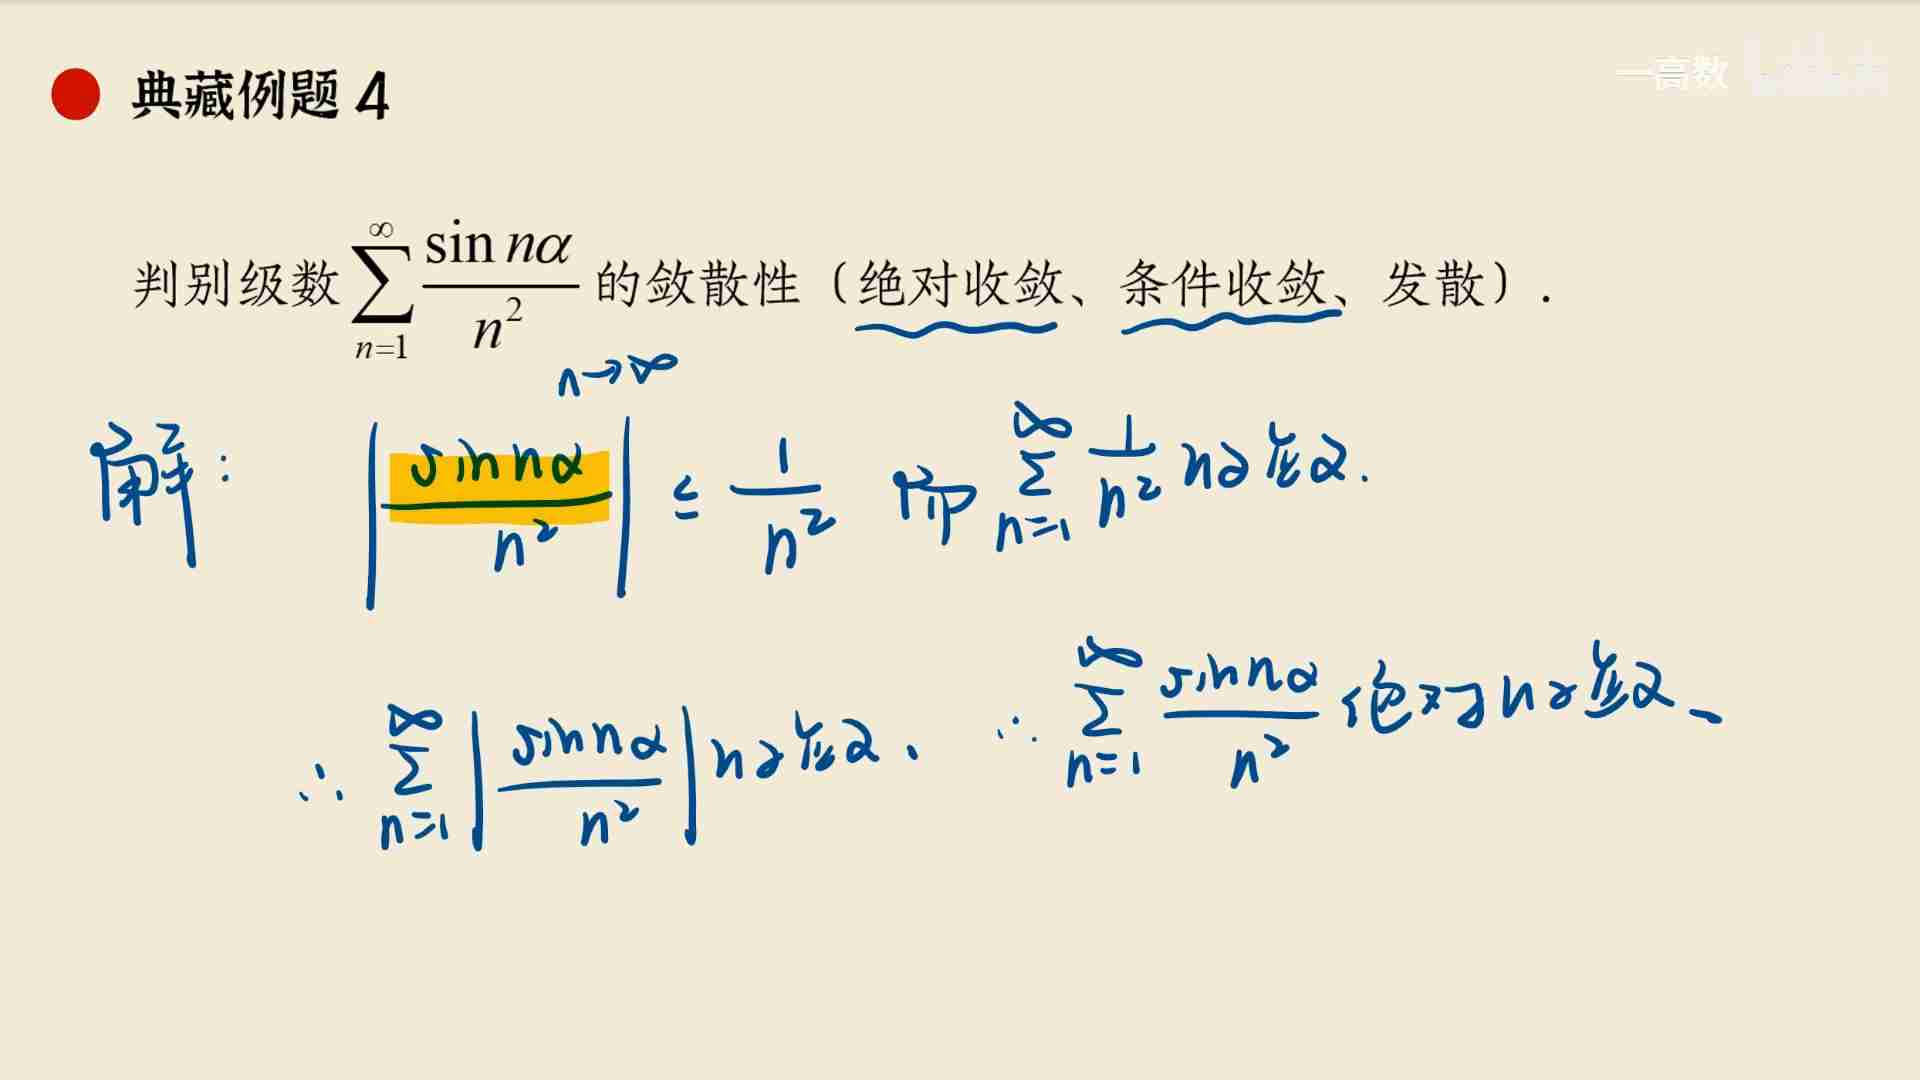 典藏例题 4
一高数
判别级数 $\sum_{n=1}^{\infty} \frac{\sin n\alpha}{n^2}$ 的敛散性（绝对收敛、条件收敛、发散）.
n→∞
解： $\left|\frac{\sin n\alpha}{n^2}\right| \le \frac{1}{n^2}$ 而 $\sum_{n=1}^{\infty} \frac{1}{n^2}$ 收敛.
∴ $\sum_{n=1}^{\infty} \left|\frac{\sin n\alpha}{n^2}\right|$ 收敛、 ∴ $\sum_{n=1}^{\infty} \frac{\sin n\alpha}{n^2}$ 绝对收敛、